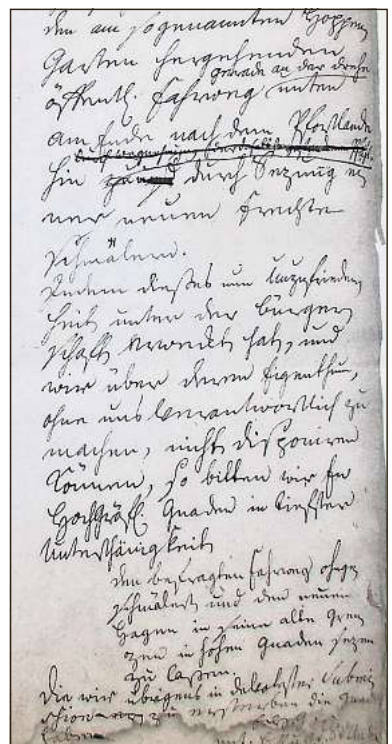 den am sogenannten Hoppen
Garten hergehenden
gerade an der
öffentl. Fahrweg unten
am Ende nach dem
hin durch Sezung ei
ner neuen Frechte
schmälern.
Indem dießes nun Unzufrieden
heit unter der Bürger
schaft erweckt hat, und
wir über deren Eigenthum,
ohne uns verantwortlich zu
machen, nicht disponiren
können, so bitten wir Ew
Hochgräfl. Gnaden in tiefster
Unterthänigkeit
den befragten Fahrweg ohnge
schmälert und den neuen
Hagen in seine alte Gren
zen in hohen Gnaden sezen
zu lassen.
Die wir übrigens in devotester Submi
ssion zu ersterben die Gnade
haben